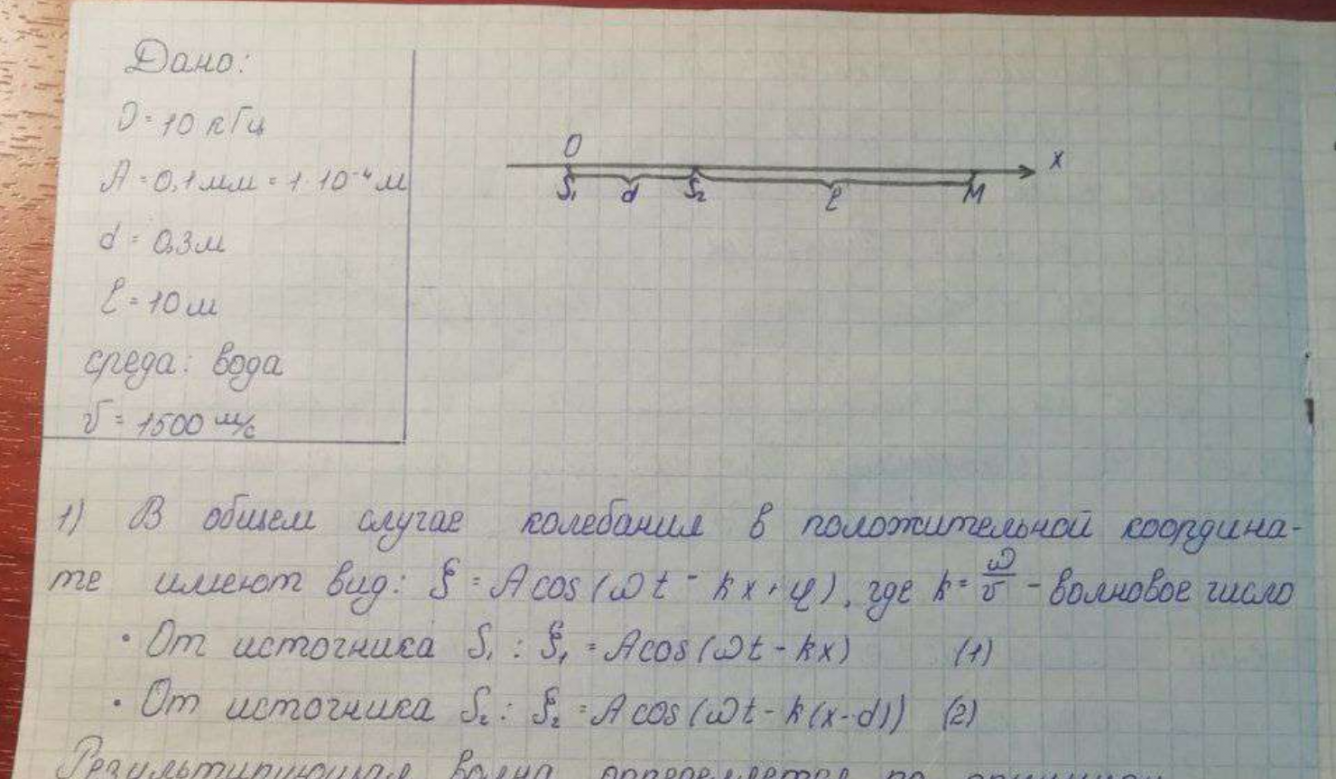 Дано:
ν = 10 кГц
A = 0,1 мм = 1·10⁻⁴ м
d = 0,3 м
ℓ = 10 м
среда: вода
v = 1500 м/с
O
x
S₁ d S₂ ℓ M
1) В общем случае колебания в положительной координа-
те имеют вид: ξ = A cos(ωt - kx + φ), где k = ω/v - волновое число
• От источника S₁: ξ₁ = A cos(ωt - kx) (1)
• От источника S₂: ξ₂ = A cos(ωt - k(x-d)) (2)
Результирующая волна определяется по